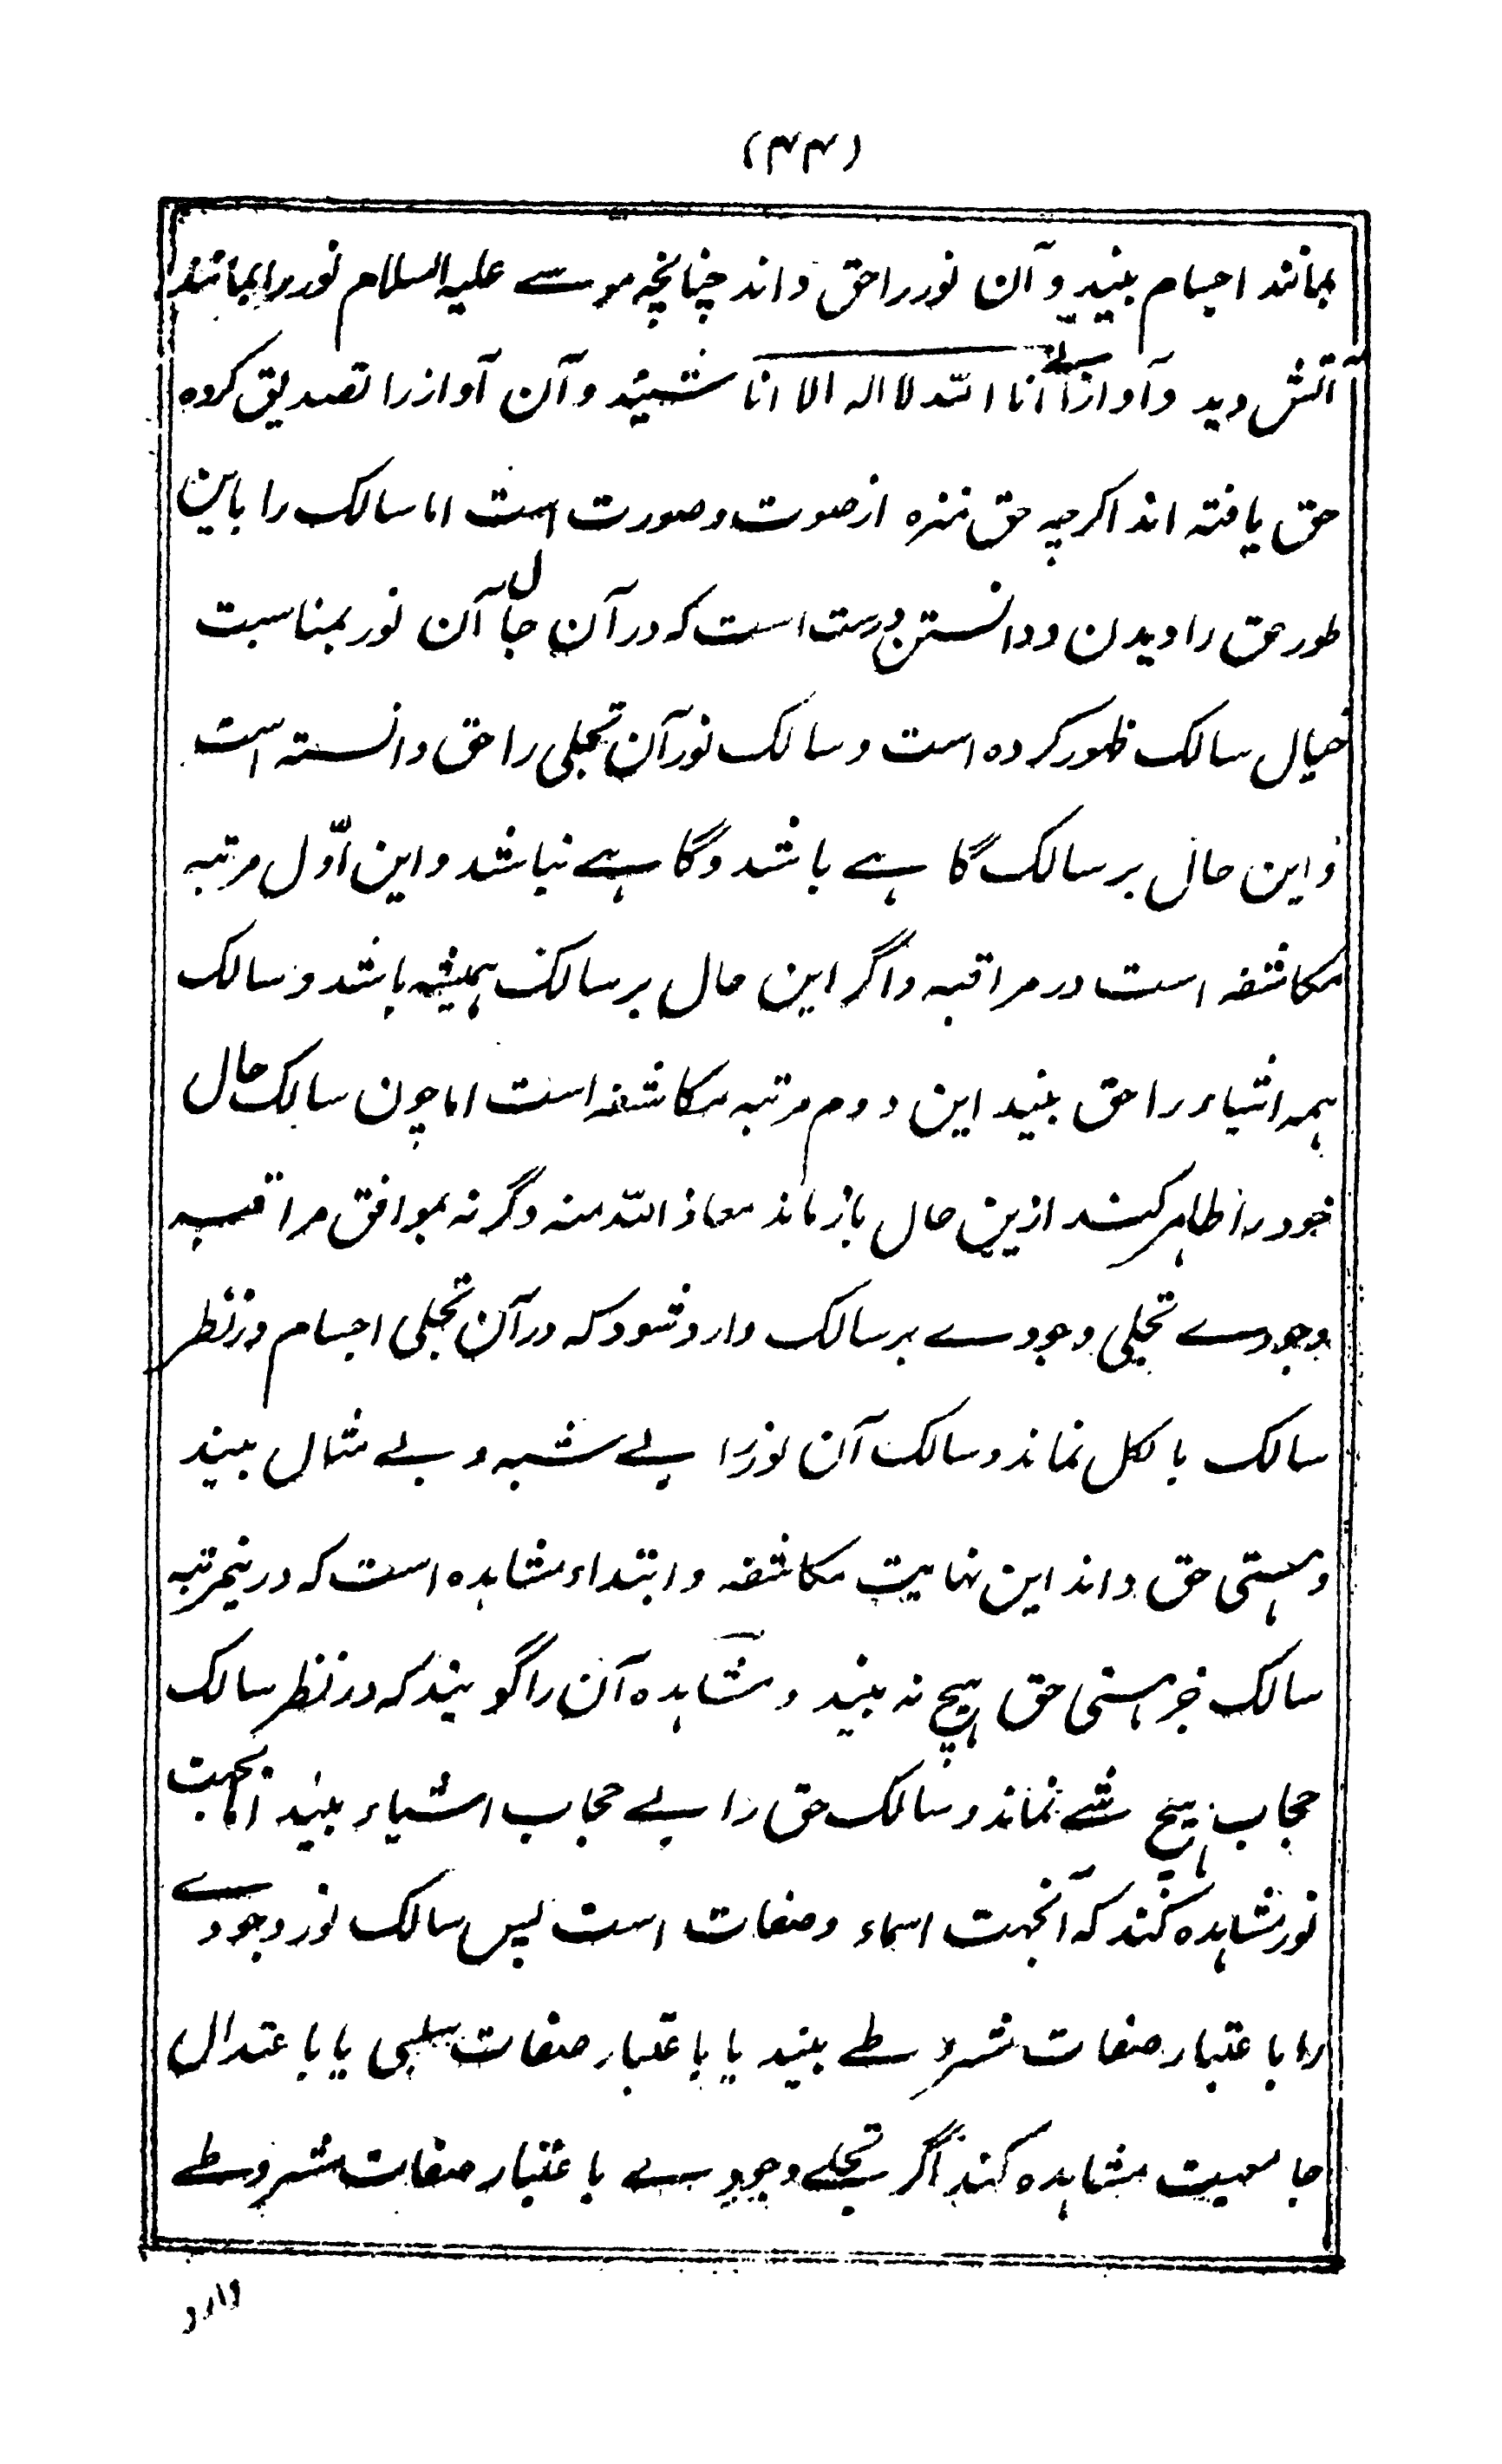 (۴۴)
بمانند اجسام بیند و آن نور را حق داند چنانچہ موسے علیہ السلام نور را بمانند
آتش دید و آواز انی انا اللہ لا الہ الا انا شنید و آن آواز را تصدیق کردہ
حق یافتہ اند اگرچہ حق منزہ از صوت و صورت است اما سالک را باین
طور حق را دیدن و دانستن درست است کہ در آن حال آن نور بمناسبت
خیال سالک ظہور کردہ است و سالک نور آن تجلی را حق دانستہ است
و این حال بر سالک گاہے باشد و گاہے نباشد و این اوّل مرتبہ
مکاشفہ است در مراقبہ و اگر این حال بر سالک ہمیشہ باشد و سالک
ہمہ اشیاء را حق بیند این دوم مرتبہ مکاشفہ است اما چون سالک حال
خود را ظاہر کند ازین حال باز ماند معاذ اللہ منہ وگرنہ بموافق مراقبہ
وجودے تجلی وجودے بر سالک وارد شود کہ در آن تجلی اجسام در نظر
سالک بالکل نماند و سالک آن نور را بے شبہ و بے مثال بیند
و ہستی حق داند این نہایت مکاشفہ و ابتداء مشاہدہ است کہ درینمرتبہ
سالک جز ہستی حق ہیچ نہ بیند و مشاہدہ آن را گویند کہ در نظر سالک
حجاب ہیچ شے نماند و سالک حق را بے حجاب اشیاء بیند اما بجہت
نور مشاہدہ کند کہ آنجہت اسماء و صفات است پس سالک نور وجودے
را باعتبار صفات شروطے بیند یا باعتبار صفات سلبی یا باعتدال
جامعیت مشاہدہ کند اگر تجلے وجودے باعتبار صفات شروطے
وارد